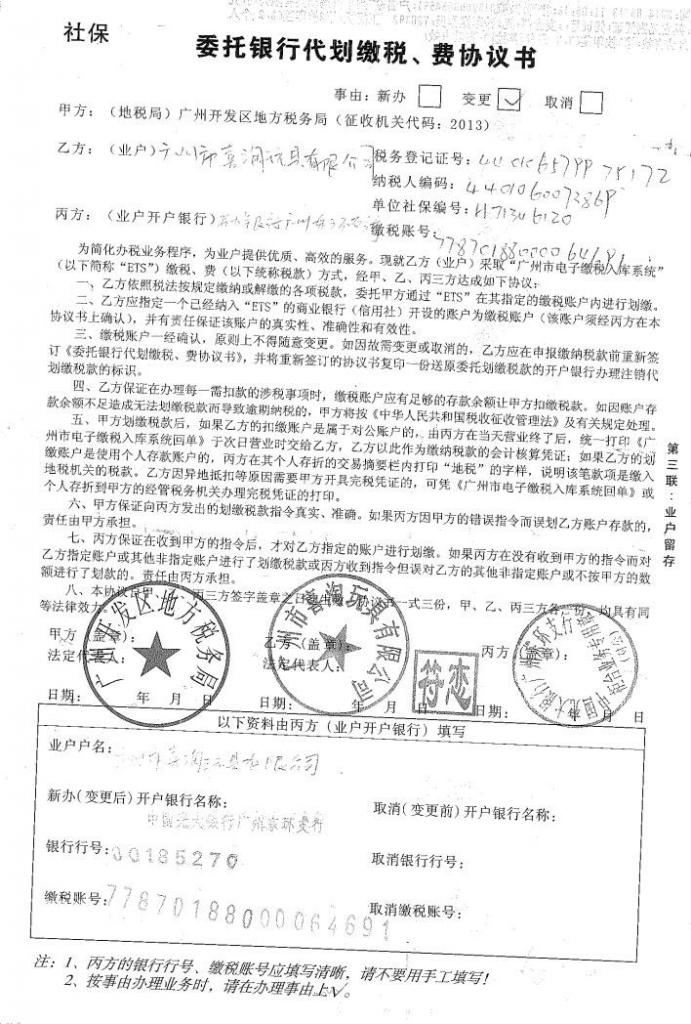 社保
委托银行代划缴税、费协议书
事由：新办 □ 变更 ☑ 取消 □
甲方：（地税局）广州开发区地方税务局（征收机关代码：2013）
乙方：（业户）广州市喜淘玩具有限公司
税务登记证号：
纳税人编码：4401060073869
单位社保编号：
丙方：（业户开户银行）
缴税账号：77870188000064691
为简化办税业务程序，为业户提供优质、高效的服务。现就乙方（业户）采取“广州市电子缴税入库系统”
（以下简称“ETS”）缴税、费（以下统称税款）方式，经甲、乙、丙三方达成如下协议：
一、乙方依照税法按规定缴纳或解缴的各项税款，委托甲方通过“ETS”在其指定的缴税账户内进行划缴。
二、乙方应指定一个已经纳入“ETS”的商业银行（信用社）开设的账户为缴税账户（该账户须经丙方在本
协议书上确认），并有责任保证该账户的真实性、准确性和有效性。
三、缴税账户一经确认，原则上不得随意变更。如因故需变更或取消的，乙方应在申报缴纳税款前重新签
订《委托银行代划缴税、费协议书》，并将重新签订的协议书复印一份送原委托划缴税款的开户银行办理注销代
划缴税款的标识。
四、乙方保证在办理每一需扣款的涉税事项时，缴税账户应有足够的存款余额让甲方扣缴税款。如因账户存
款余额不足造成无法划缴税款而导致逾期纳税的，甲方将按《中华人民共和国税收征收管理法》及有关规定处理。
五、甲方划缴税款后，如果乙方的扣缴账户是属于对公账户的，由丙方在当天营业终了后，统一打印《广
州市电子缴税入库系统回单》于次日营业时交给乙方，乙方以此作为缴纳税款的会计核算凭证；如果乙方的划
缴账户是使用个人存款账户的，丙方在其个人存折的交易摘要栏内打印“地税”的字样，说明该笔款项是缴入
地税机关的税款。乙方因异地抵扣等原因需要甲方开具完税凭证的，可凭《广州市电子缴税入库系统回单》或
个人存折到甲方的经管税务机关办理完税凭证的打印。
六、甲方保证向丙方发出的划缴税款指令真实、准确。如果丙方因甲方的错误指令而误划乙方账户存款的，
责任由甲方承担。
七、丙方保证在收到甲方的指令后，才对乙方指定的账户进行划缴。如果丙方在没有收到甲方的指令而对
乙方指定账户或其他非指定账户进行了划缴税款或丙方收到指令但误对乙方的其他非指定账户或不按甲方的数
额进行了划款的。责任由丙方承担。
八、本协议自甲、乙、丙三方签字盖章之日起生效。协议书一式三份，甲、乙、丙三方各一份，均具有同
等法律效力。
第三联：业户留存
甲方（盖章）：
乙方（盖章）：
丙方（盖章）：
法定代表人：
法定代表人：
日期： 年 月 日
日期： 年 月 日
日期： 年 月 日
广州开发区地方税务局
广州市喜淘玩具有限公司
符恋
以下资料由丙方（业户开户银行）填写
业户户名：广州市喜淘玩具有限公司
新办（变更后）开户银行名称：
取消（变更前）开户银行名称：
中国光大银行广州东环支行
银行行号：00185270
取消银行行号：
缴税账号：77870188000064691
取消缴税账号：
注：1、丙方的银行行号、缴税账号应填写清晰，请不要用手工填写！
2、按事由办理业务时，请在办理事由上√。